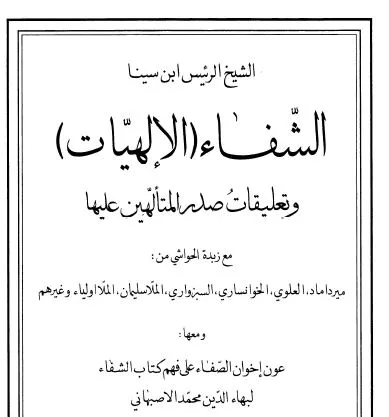 الشيخ الرئيس ابن سينا
الشّفاء (الإلهيّات)
وتعليقاتُ صدر المتألّهين عليها
مع زبدة الحواشي من:
ميرداماد، العلوي، الخوانساري، السبزواري، الملّاسليمان، الملّااولياء وغيرهم
ومعها:
عون إخوان الصّفاء على فهم كتاب الشفاء
لبهاء الدّين محمّد الاصبهاني